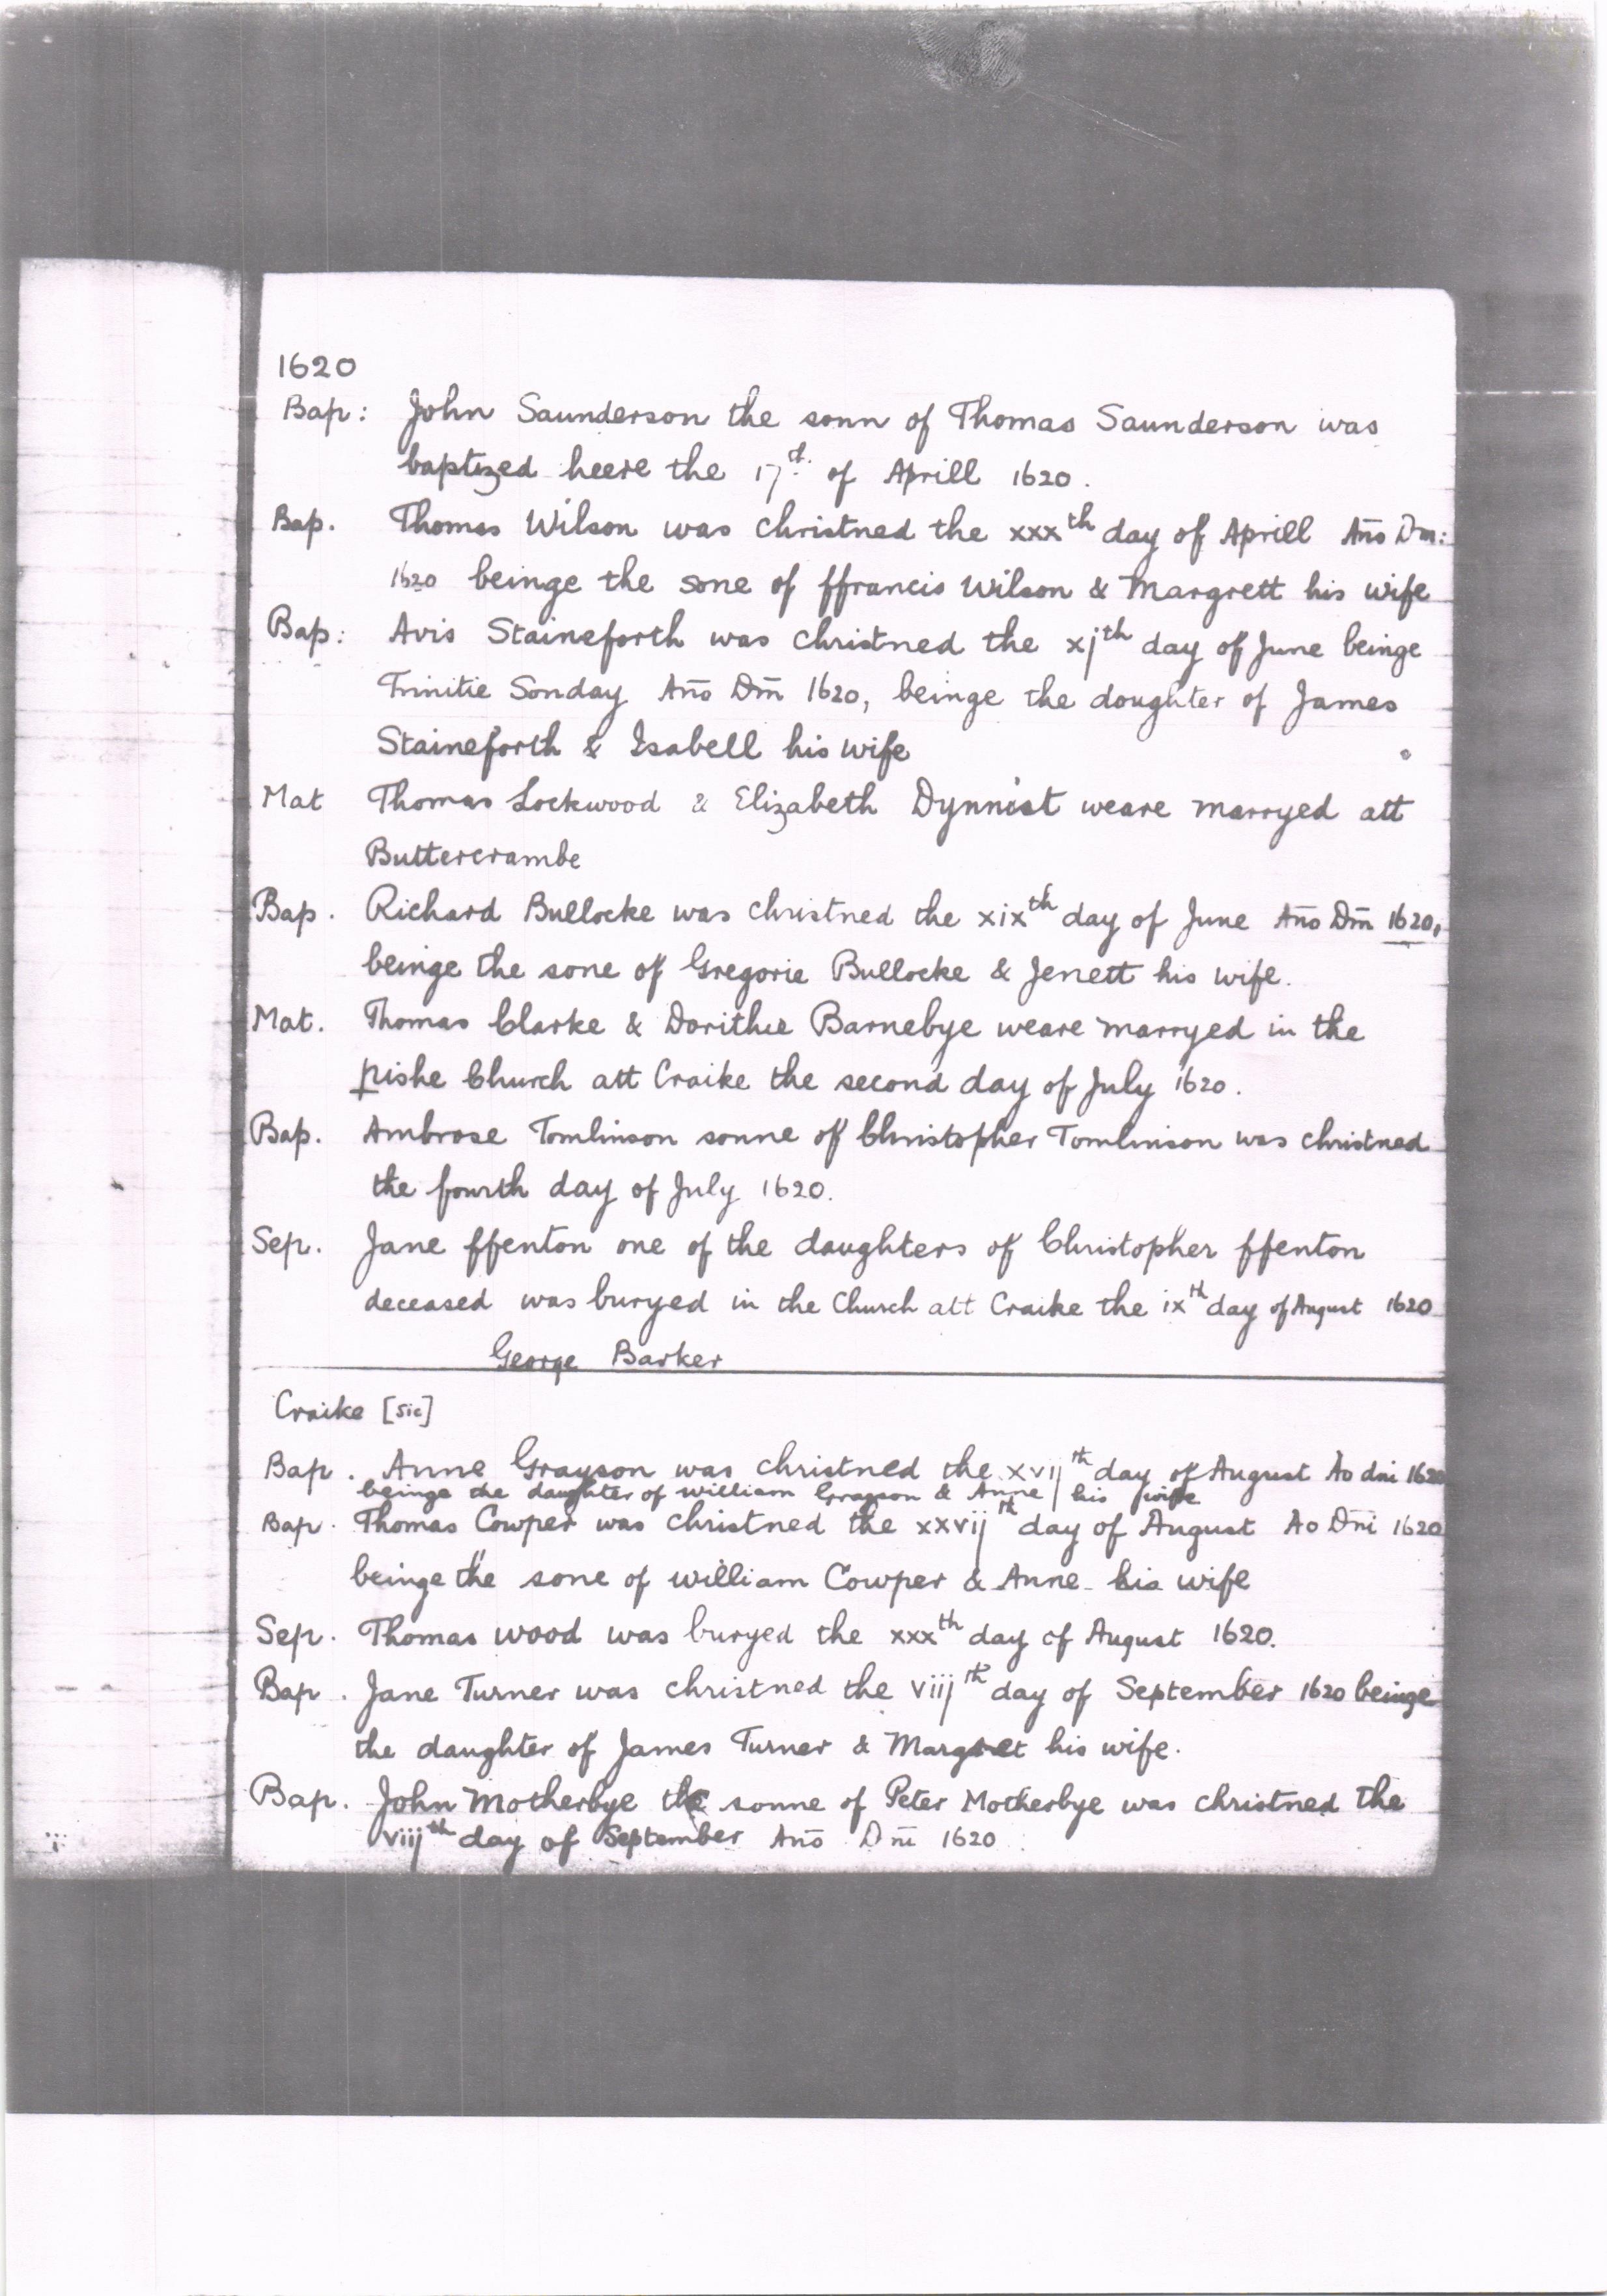 1620
Bap: John Saunderson the sonn of Thomas Saunderson was
baptized heere the 17th. of Aprill 1620.
Bap. Thomas Wilson was christned the xxxth day of Aprill Año Dm:
1620 beinge the sone of ffrancis Wilson & Margrett his wife
Bap: Avis Staineforth was christned the xjth day of June beinge
Trinitie Sonday Año Dm̄ 1620, beinge the doughter of James
Staineforth & Isabell his wife
Mat Thomas Lockwood & Elizabeth Dynnist weare marryed att
Buttercrambe
Bap. Richard Bullocke was christned the xixth day of June Año Dm̄ 1620,
beinge the sone of Gregorie Bullocke & Jenett his wife.
Mat. Thomas Clarke & Dorithie Barnebye weare marryed in the
pishe Church att Craike the second day of July 1620.
Bap. Ambrose Tomlinson sonne of Christopher Tomlinson was christned
the fourth day of July 1620.
Sep. Jane ffenton one of the daughters of Christopher ffenton
deceased was buryed in the Church att Craike the ixth day of August 1620
George Barker
Craike [sic]
Bap. Anne Grayson was christned the xvijth day of August Ao dni 1620
beinge the daughter of William Grayson & Anne his wife
Bap. Thomas Cowper was christned the xxvijth day of August Ao Dni 1620
beinge the sone of william Cowper & Anne his wife
Sep. Thomas wood was buryed the xxxth day of August 1620.
Bap. Jane Turner was christned the viijth day of September 1620 beinge
the daughter of James Turner & Margret his wife.
Bap. John Motherbye the sonne of Peter Motherbye was christned the
viijth day of September Año Dm̄ 1620